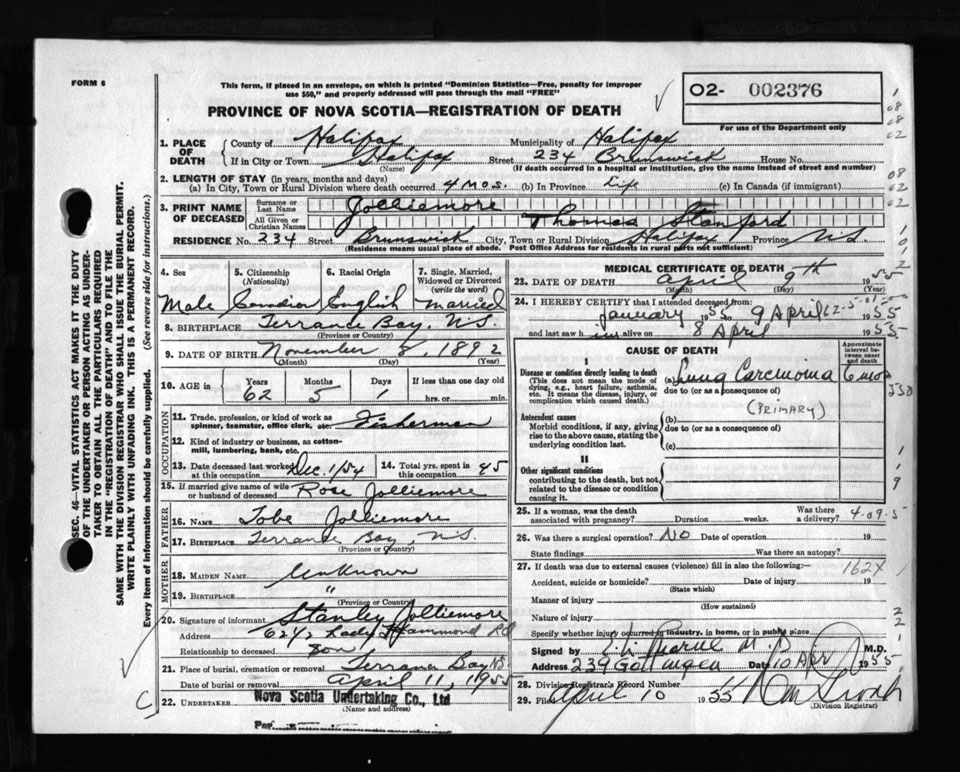 FORM 6
This form, if placed in an envelope, on which is printed "Dominion Statistics—Free, penalty for improper
use $50," and properly addressed will pass through the mail "FREE"
PROVINCE OF NOVA SCOTIA—REGISTRATION OF DEATH
O2- 002376
For use of the Department only
1. PLACE OF DEATH
County of Halifax Municipality of Halifax
If in City or Town Halifax Street 234 Brunswick House No.
(Name) (If death occurred in a hospital or institution, give the name instead of street and number)
2. LENGTH OF STAY (in years, months and days)
(a) In City, Town or Rural Division where death occurred 4 mos. (b) In Province Life (c) In Canada (if immigrant)
3. PRINT NAME OF DECEASED
Surname or Last Name Jolliemore
All Given or Christian Names Thomas Stanford
RESIDENCE No. 234 Street Brunswick City, Town or Rural Division Halifax Province N.S.
(Residence means usual place of abode. Post Office Address for residents in rural parts not sufficient)
4. Sex 5. Citizenship (Nationality) 6. Racial Origin 7. Single, Married, Widowed or Divorced (write the word)
Male Canadian English married
8. BIRTHPLACE Terrance Bay, N.S.
(Province or Country)
9. DATE OF BIRTH November 8, 1892
(Month) (Day) (Year)
10. AGE in Years Months Days If less than one day old
62 5 1 hrs. or min.
OCCUPATION
11. Trade, profession, or kind of work as
spinner, teamster, office clerk, etc. Fisherman
12. Kind of industry or business, as cotton-
mill, lumbering, bank, etc.
13. Date deceased last worked at this occupation Dec. 1/54 14. Total yrs. spent in this occupation 45
15. If married give name of wife or husband of deceased Rose Jolliemore
FATHER
16. NAME Tobe Jolliemore
17. BIRTHPLACE Terrance Bay, N.S.
(Province or Country)
MOTHER
18. MAIDEN NAME Unknown
19. BIRTHPLACE "
(Province or Country)
20. Signature of informant Stanley Jolliemore
Address 624½ Lady Hammond Rd
Relationship to deceased Son
21. Place of burial, cremation or removal Terrance Bay N.S.
Date of burial or removal April 11, 1955
22. UNDERTAKER Nova Scotia Undertaking Co., Ltd
(Name and address)
Per
MEDICAL CERTIFICATE OF DEATH
23. DATE OF DEATH April 9th 1955
(Month) (Day) (Year)
24. I HEREBY CERTIFY that I attended deceased from:
January 1955 to 9 April 1955
and last saw h im alive on 8 April 1955
CAUSE OF DEATH
Approximate interval between onset and death
I
Disease or condition directly leading to death
(This does not mean the mode of dying, e.g., heart failure, asthenia, etc. It means the disease, injury, or complication which caused death.)
(a) Lung Carcinoma 6 mos
due to (or as a consequence of)
(PRIMARY)
Antecedent causes
Morbid conditions, if any, giving rise to the above cause, stating the underlying condition last.
(b)
due to (or as a consequence of)
(c)
II
Other significant conditions
contributing to the death, but not related to the disease or condition causing it.
25. If a woman, was the death associated with pregnancy? Duration weeks. Was there a delivery?
4-09-5
26. Was there a surgical operation? No Date of operation 19
State findings Was there an autopsy?
27. If death was due to external causes (violence) fill in also the following:—
162X
Accident, suicide or homicide? Date of injury 19
(State which)
Manner of injury
(How sustained)
Nature of injury
Specify whether injury occurred in industry, in home, or in public place
Signed by M.D.
Address 239 Gottingen Date 10 Apr 1955
28. Division Registrar's Record Number
29. Filed April 10 1955
(Division Registrar)
SEC. 46—VITAL STATISTICS ACT MAKES IT THE DUTY
OF THE UNDERTAKER OR PERSON ACTING AS UNDER-
TAKER TO OBTAIN ALL THE PARTICULARS REQUIRED
IN THE "REGISTRATION OF DEATH" AND TO FILE THE
SAME WITH THE DIVISION REGISTRAR WHO SHALL ISSUE THE BURIAL PERMIT.
WRITE PLAINLY WITH UNFADING INK. THIS IS A PERMANENT RECORD.
Every item of information should be carefully supplied. (See reverse side for instructions.)